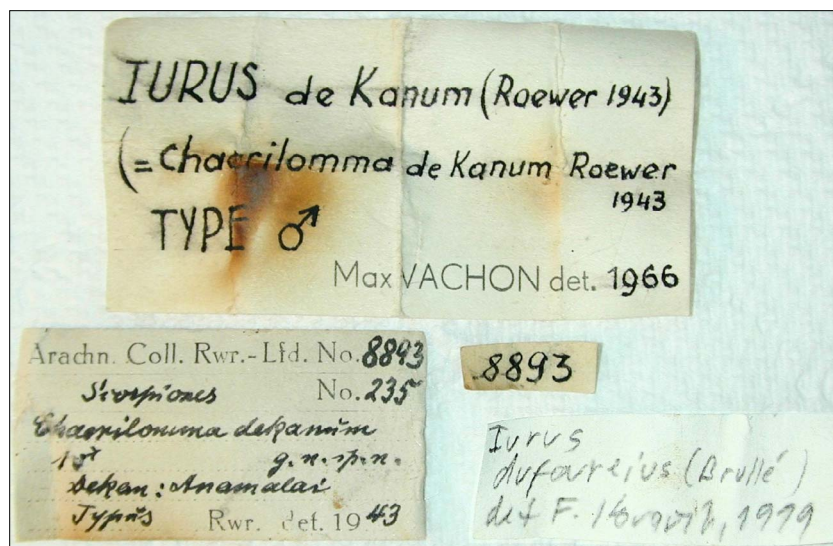 IURUS de Kanum (Roewer 1943)
(= Chaerilomma de Kanum Roewer
1943
TYPE ♂
Max VACHON det. 1966
Arachn. Coll. Rwr.-Lfd. No. 8893
Scorpiones No. 235
Chaerilomma dekanum
1♂ g. n. sp. n.
Dekan: Anamalai
Typus Rwr. det. 1943
8893
Iurus
dufoureius (Brullé)
det F. 1979